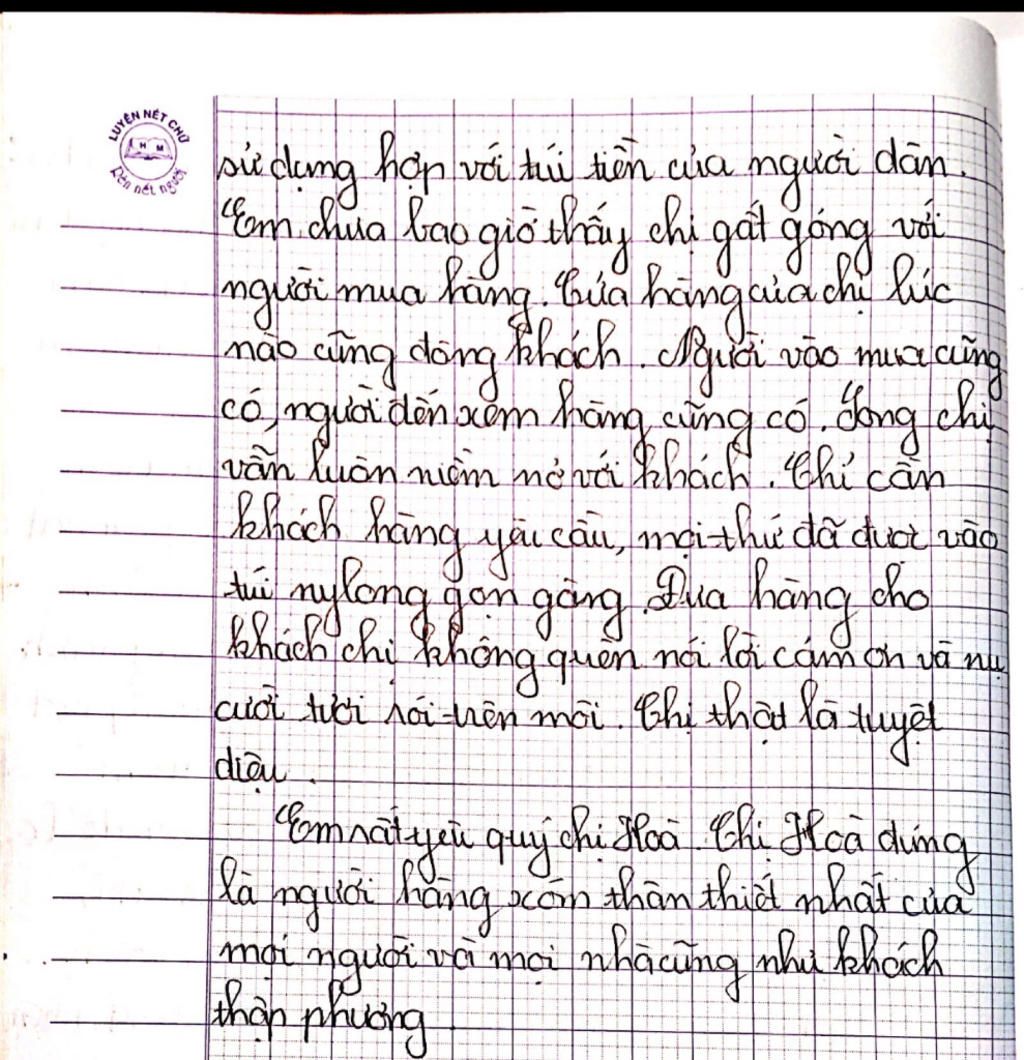 LUYỆN NÉT CHỮ
H M
Rèn nết người
sử dụng hợp với túi tiền của người dân.
Em chưa bao giờ thấy chị gắt gỏng với
người mua hàng. Cửa hàng của chị lúc
nào cũng đông khách. Người vào mua cũng
có, người đến xem hàng cũng có. Song chị
vẫn luôn niềm nở với khách. Chỉ cần
khách hàng yêu cầu, mọi thứ đã được vào
túi nylong gọn gàng. Đưa hàng cho
khách chị không quên nói lời cảm ơn và nụ
cười tươi rói trên môi. Chị thật là tuyệt
diệu.
Em rất yêu quý chị Hoà. Chị Hoà đúng
là người hàng xóm thân thiết nhất của
mọi người và mọi nhà cũng như khách
thập phương.